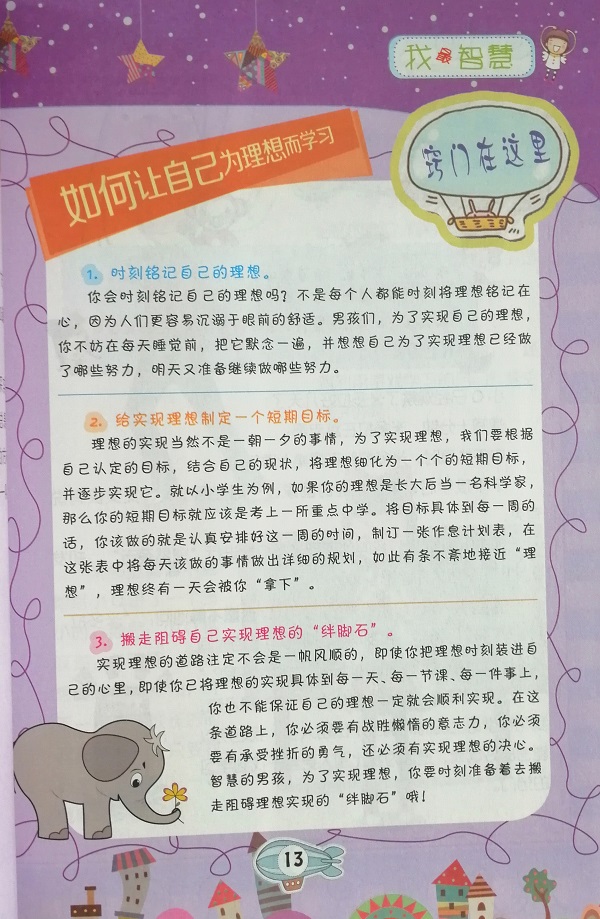 我最智慧
窍门在这里
如何让自己为理想而学习
1. 时刻铭记自己的理想。
你会时刻铭记自己的理想吗？不是每个人都能时刻将理想铭记在
心，因为人们更容易沉溺于眼前的舒适。男孩们，为了实现自己的理想，
你不妨在每天睡觉前，把它默念一遍，并想想自己为了实现理想已经做
了哪些努力，明天又准备继续做哪些努力。
2. 给实现理想制定一个短期目标。
理想的实现当然不是一朝一夕的事情，为了实现理想，我们要根据
自己认定的目标，结合自己的现状，将理想细化为一个个的短期目标，
并逐步实现它。就以小学生为例，如果你的理想是长大后当一名科学家，
那么你的短期目标就应该是考上一所重点中学。将目标具体到每一周的
话，你该做的就是认真安排好这一周的时间，制订一张作息计划表，在
这张表中将每天该做的事情做出详细的规划，如此有条不紊地接近“理
想”，理想终有一天会被你“拿下”。
3. 搬走阻碍自己实现理想的“绊脚石”。
实现理想的道路注定不会是一帆风顺的，即使你把理想时刻装进自
己的心里，即使你已将理想的实现具体到每一天、每一节课、每一件事上，
你也不能保证自己的理想一定就会顺利实现。在这
条道路上，你必须要有战胜懒惰的意志力，你必须
要有承受挫折的勇气，还必须有实现理想的决心。
智慧的男孩，为了实现理想，你要时刻准备着去搬
走阻碍理想实现的“绊脚石”哦！
13